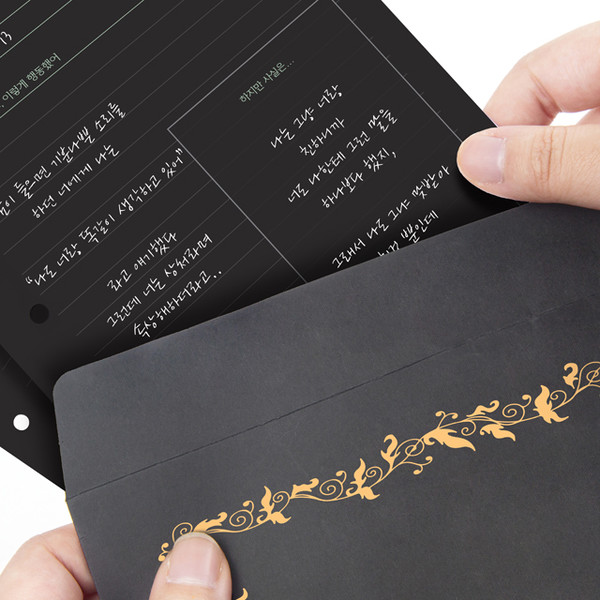 13
이렇게 행동했어
들으면 기분나쁠 소리를
하던 너에게 나는
"나도 너랑 똑같이 생각하고 있어"
라고 얘기했다
그런데 너는 상처라며
속상해하더라고..
하지만 사실은...
나는 그냥 너랑
친하니까
너도 나한테 그런 말을
하나보다 했지,
그래서 나도 그냐 맞받아
뿐인데